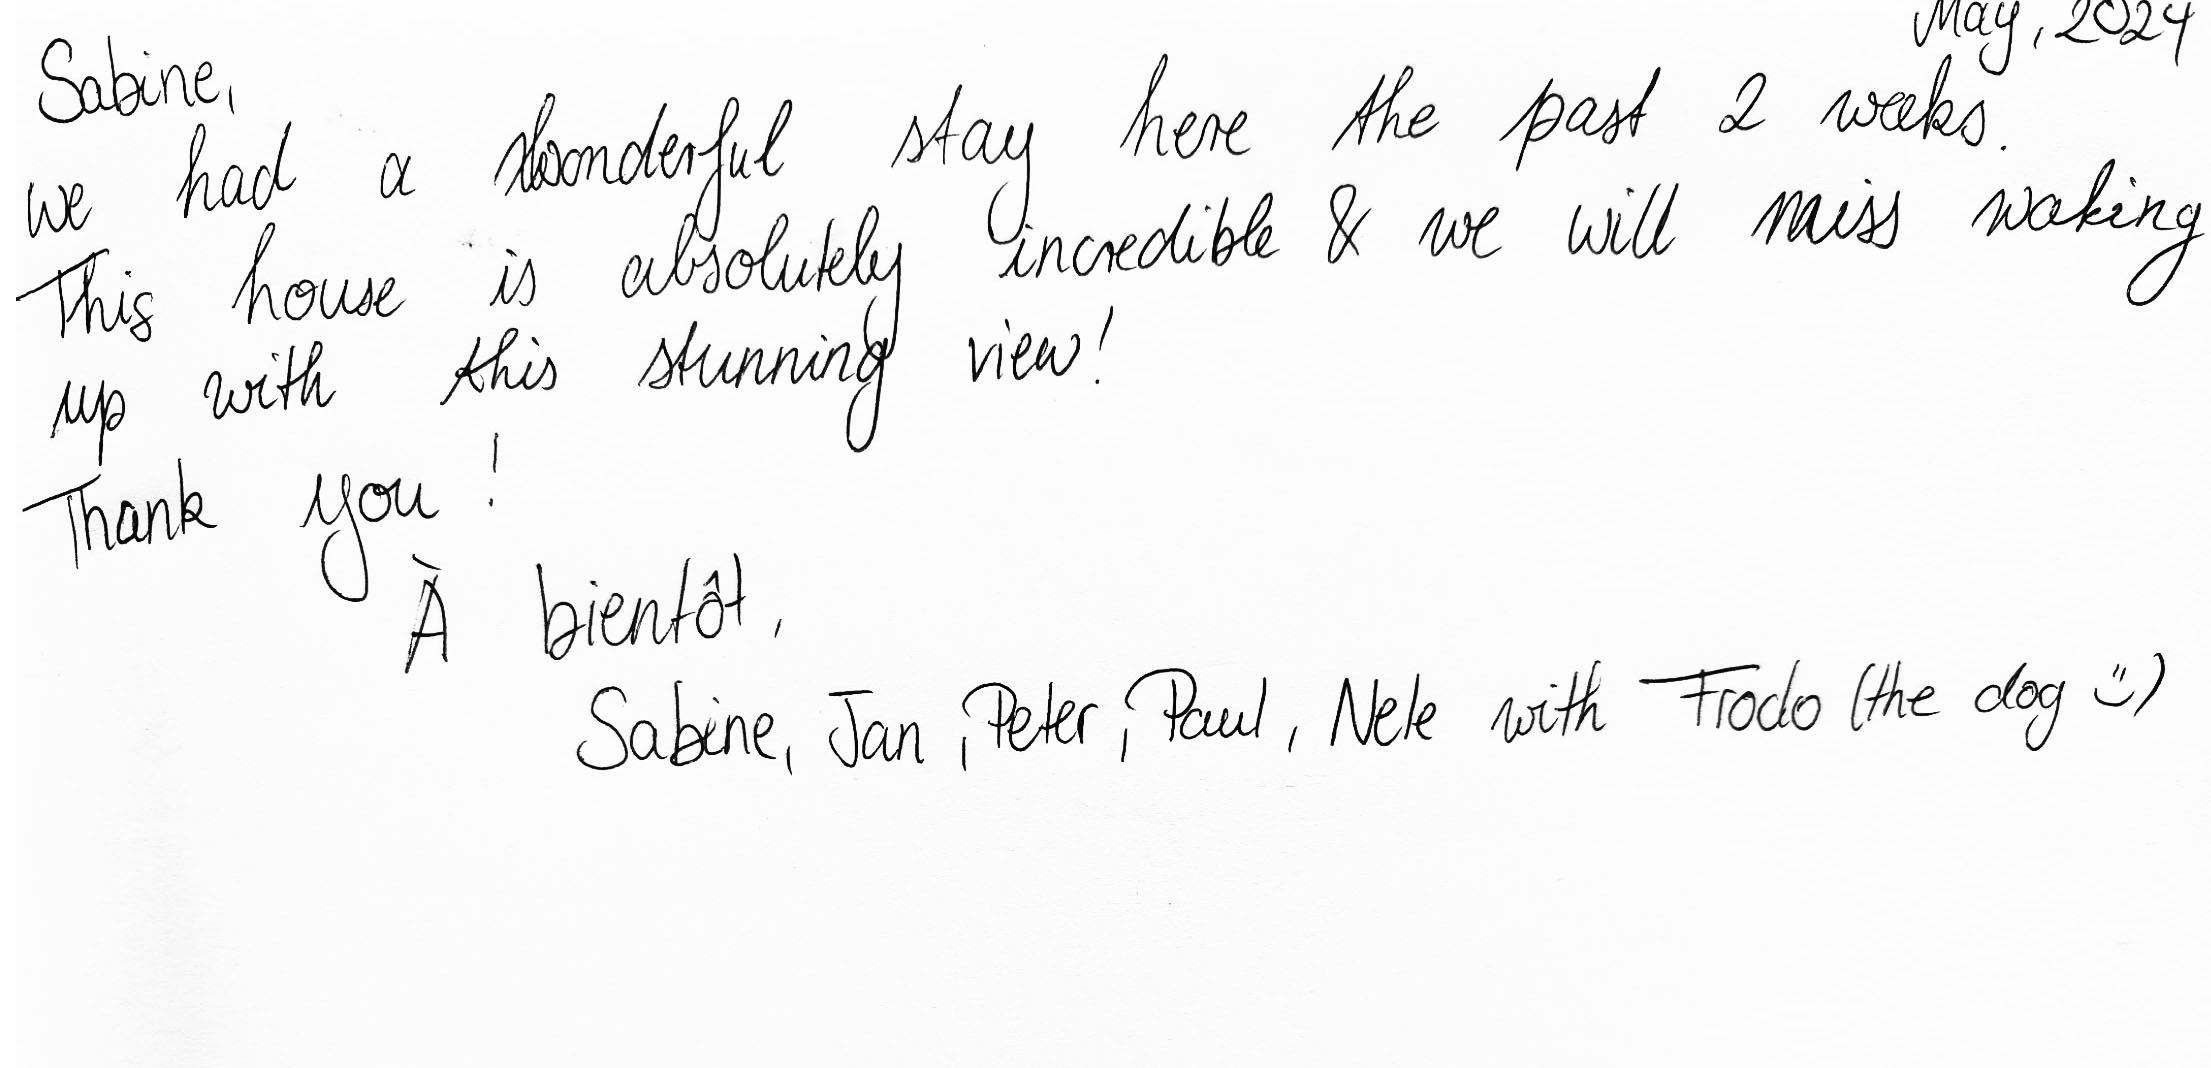 May, 2024
Sabine,
we had a wonderful stay here the past 2 weeks.
This house is absolutely incredible & we will miss waking
up with this stunning view!
Thank you!
À bientôt,
Sabine, Jan, Peter, Paul, Nele with Frodo (the dog :))